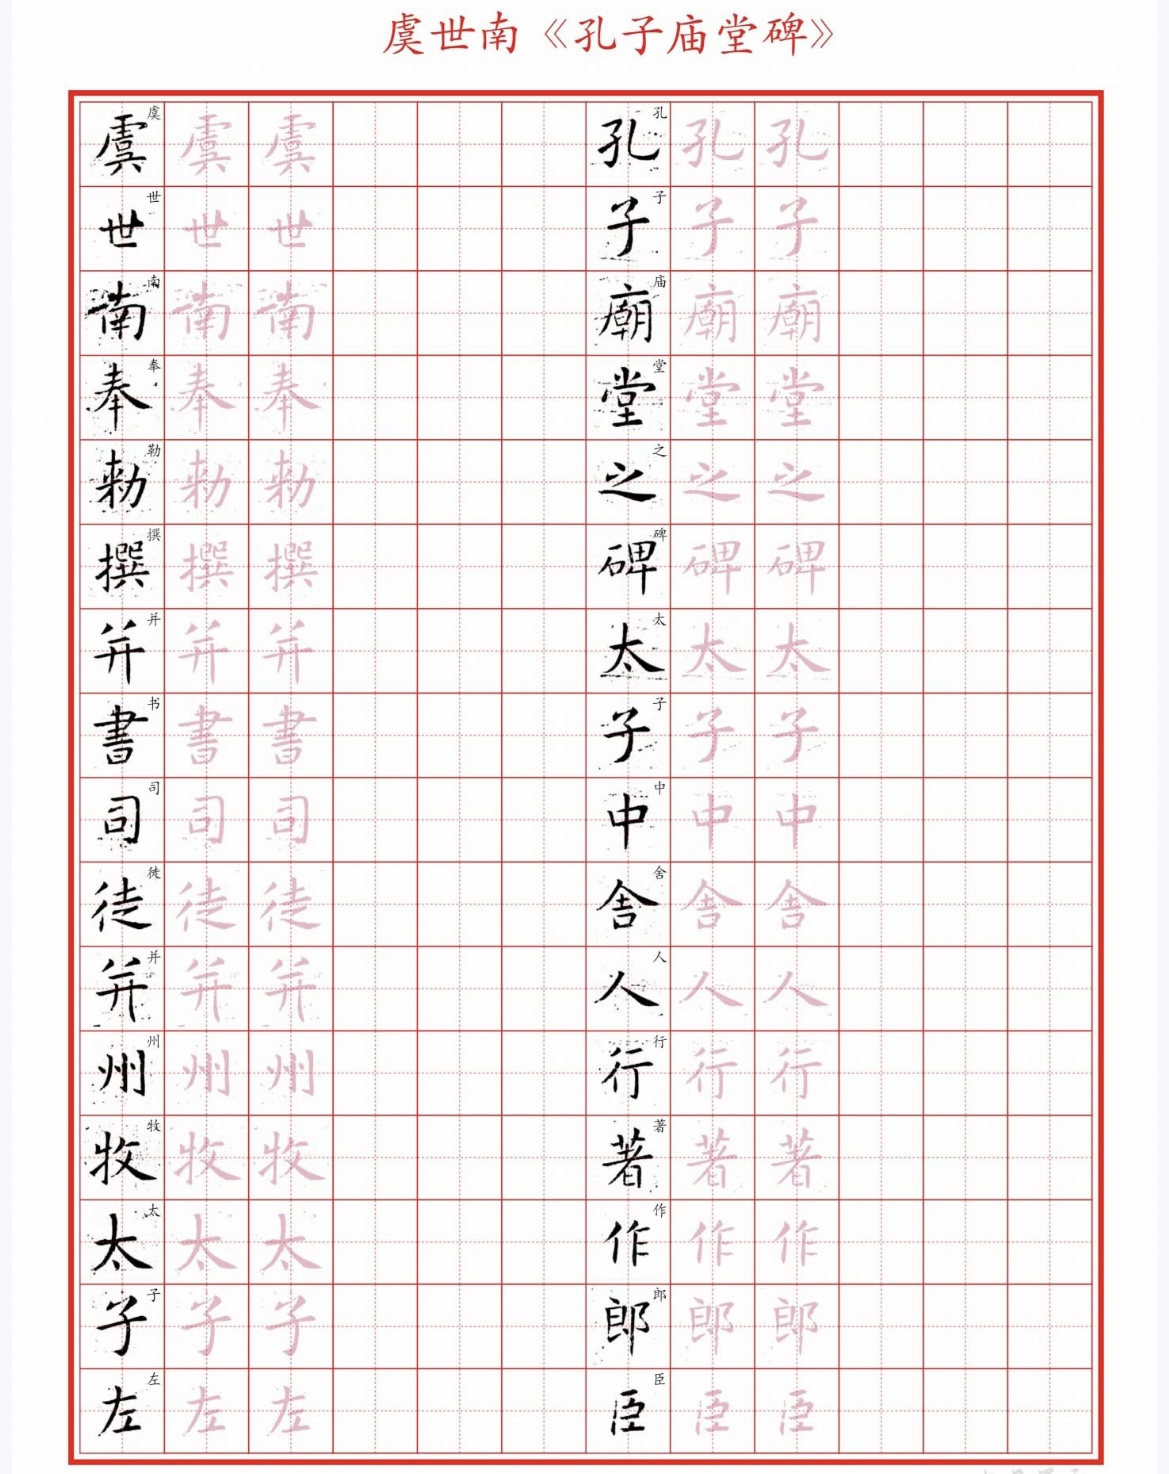 虞世南《孔子庙堂碑》
虞 虞 虞 虞 孔 孔 孔 孔
世 世 世 世 子 子 子 子
南 南 南 南 廟 庙 廟 廟
奉 奉 奉 奉 堂 堂 堂 堂
勅 勒 勅 勅 之 之 之 之
撰 撰 撰 撰 碑 碑 碑 碑
并 并 并 并 太 太 太 太
書 书 書 書 子 子 子 子
司 司 司 司 中 中 中 中
徒 徒 徒 徒 舍 舍 舍 舍
并 并 并 并 人 人 人 人
州 州 州 州 行 行 行 行
牧 牧 牧 牧 著 著 著 著
太 太 太 太 作 作 作 作
子 子 子 子 郎 郎 郎 郎
左 左 左 左 臣 臣 臣 臣